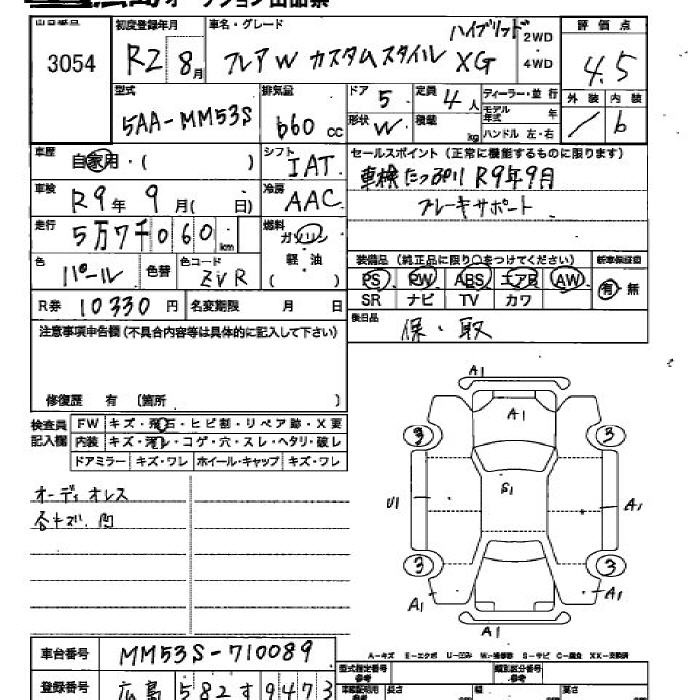 オークション出品票
出品番号 3054
初度登録年月 R2 8月
車名・グレード フレアW カスタムスタイル ハイブリッド XG
2WD・4WD
評価点 4.5
外装 / 内装 b
型式 5AA-MM53S
排気量 660 cc
ドア 5 定員 4人
形状 W 積載 kg
ディーラー・並行
モデル年式 年
ハンドル 左・右
車歴 自家用・( )
シフト IAT
車検 R9年 9月( 日)
冷房 AAC
走行 5万7千060km
燃料 ガソリン 軽油 ( )
色 パール 色替 色コード ZVR
セールスポイント (正常に機能するものに限ります)
車検たっぷり R9年9月
ブレーキサポート
装備品 (純正品に限り○をつけてください) 新車保証書
PS PW ABS エアB AW 有・無
SR ナビ TV カワ
R券 10330 円 名変期限 月 日
後日品 保・取
注意事項申告欄 (不具合内容等は具体的に記入して下さい)
修復歴 有 〔箇所 〕
検査員記入欄
FW キズ・飛石・ヒビ割・リペア跡・X要
内装 キズ・汚レ・コゲ・穴・スレ・ヘタリ・破レ
ドアミラー キズ・ワレ ホイール・キャップ キズ・ワレ
オーディオレス
各キズ、凹
A1
A1
3 3
G1
U1 A1
3 3
A1 A1
A1
A-キズ E-エクボ U-凹み W-補修跡 S-サビ C-腐食 XX-交換済
車台番号 MM53S-710089
型式指定番号 類別区分番号
登録番号 広島 582す9473
長さ 幅 高さ